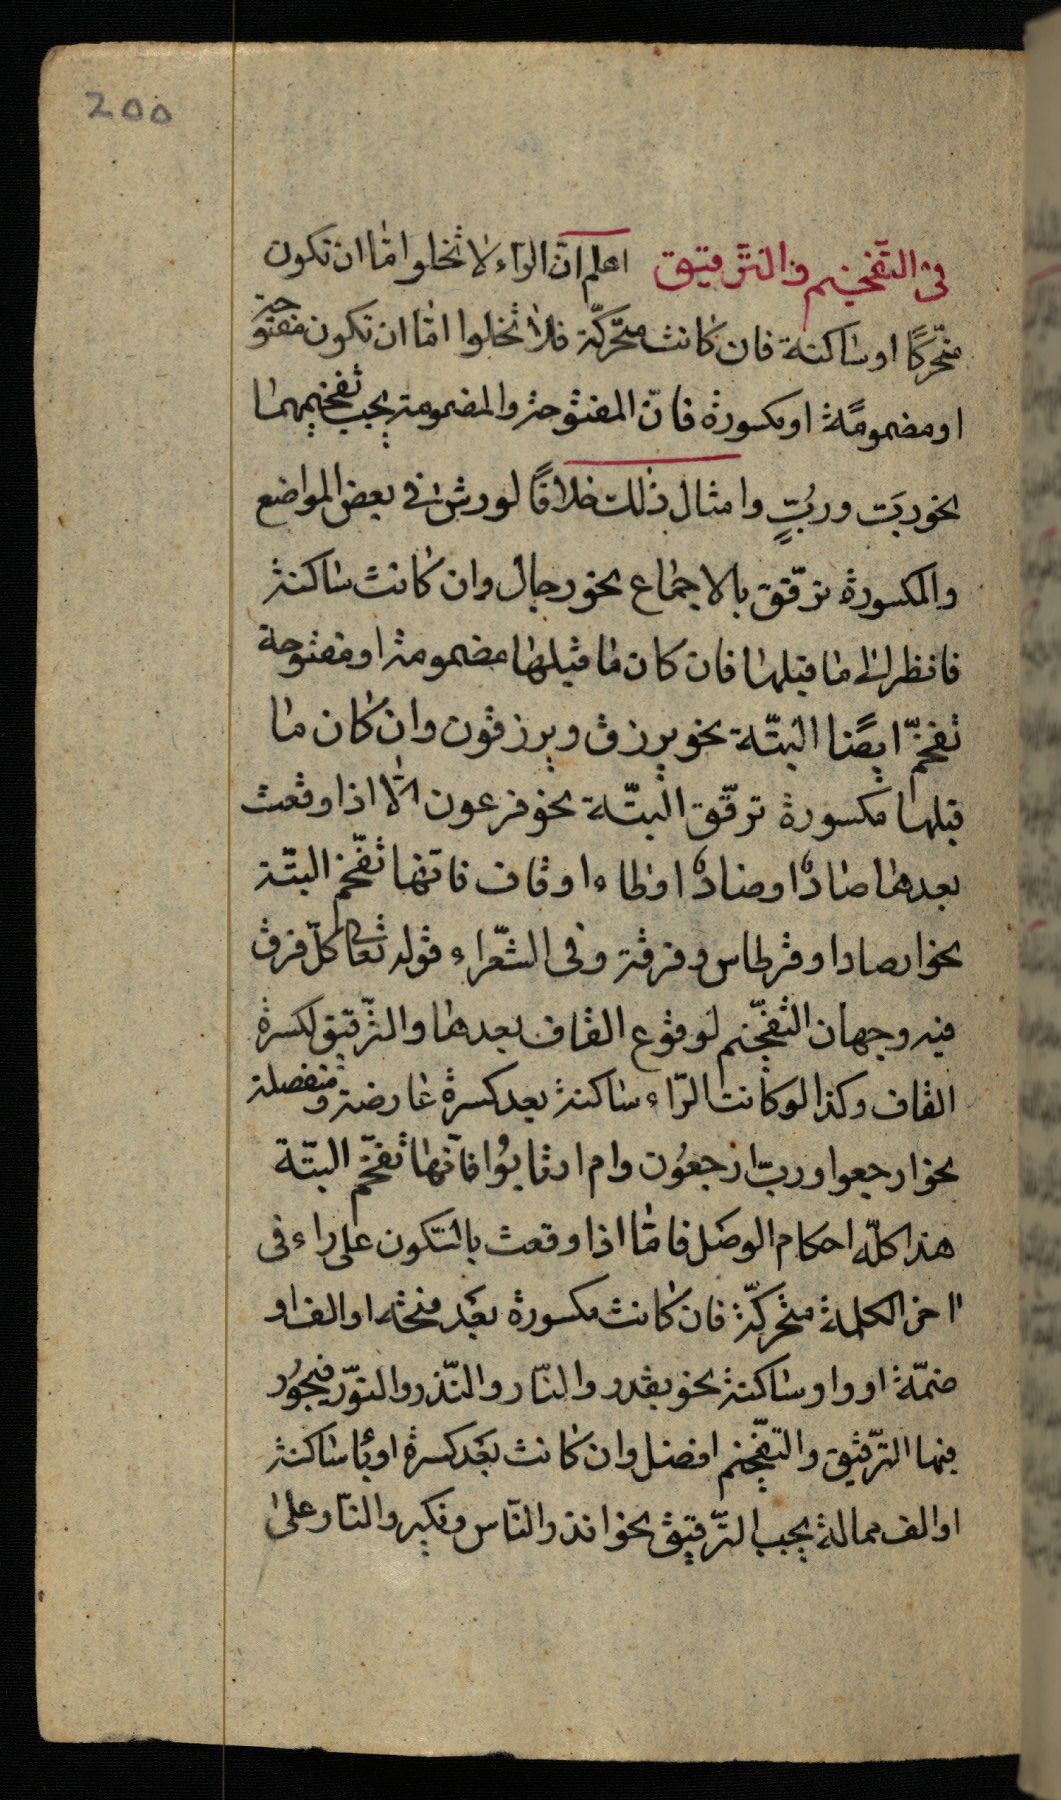 200
فى التّفخيم والترقيق اعلم انّ الرآء لا تخلوا امّا ان تكون
متحرّكًا او ساكنة فان كانت متحرّكة فلا تخلوا امّا ان تكون مفتوحة
او مضمومًة او مكسورة فانّ المفتوحة والمضمومة يجب تفخيمهما
نحو ربَك وربُّ وامثال ذلك خلافًا لورش فى بعض المواضع
والمكسورة ترقّق بالاجماع نحو رجال وان كانت ساكنة
فانظر الى ما قبلها فان كان ما قبلها مضمومة او مفتوحة
تفخّم ايضًا البتّة نحو يرزق ويرزقون وان كان ما
قبلها مكسورة ترقّق البتّة نحو فرعون الّا اذا وقعت
بعدها صادٌ او ضادٌ او طاء او قاف فانّها تفخّم البتّة
نحو ارصادا وقرطاس وفرقة وفى الشّعراء قوله تعا كلّ فرق
فيه وجهان التفخّيم لوقوع القاف بعدها والترّقيق لكسرة
القاف وكذا لو كانت الرّاء ساكنة بعد كسرة عارضة ومنفصلة
نحو ارجعوا وربّ ارجعُون وام ارتابُوا فانّها تفخّم البتّة
هذا كلّه احكام الوصل فامّا اذا وقعت بالسّكون على راء فى
اخر الكلمة متحركّة فان كانت مكسورة بعَد فتحة او الف او
ضمّة او واو ساكنة نحو بقدر والنّار والنّذر والنوّر فيجُوز
فيها الترّقيق والتفّخيم افضل وان كانت بعَد كسرة او ئا ساكنة
او الف ممالة يجب الترّقيق نحو انذر والنّاس ونكير والنّار على